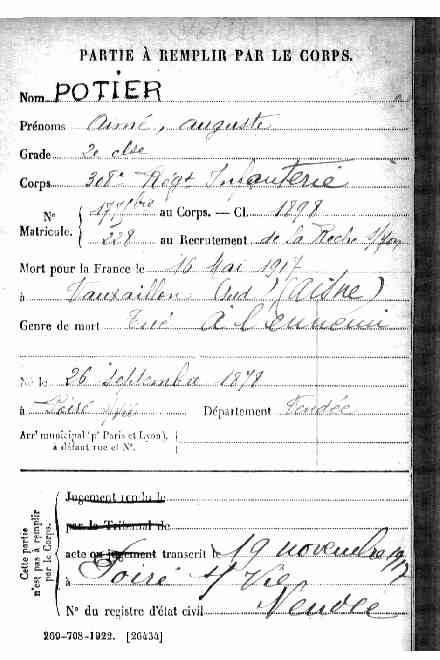 PARTIE À REMPLIR PAR LE CORPS.
Nom POTIER
Prénoms Aimé, auguste
Grade 2e clse
Corps 308e Régt Infanterie
N° Matricule. { au Corps. — Cl. 1898
228 au Recrutement de La Roche s/yon
Mort pour la France le 16 Mai 1917
à Vauxaillon (Sud) (Aisne)
Genre de mort Tué à l'ennemi
Né le 26 septembre 1878
à Département Vendée
Arrt municipal (pr Paris et Lyon),
à défaut rue et N°.
Cette partie n'est pas à remplir par le Corps.
Jugement rendu le
par le Tribunal de
acte ou jugement transcrit le 19 novembre 1917
à Poiré s/ Vie
N° du registre d'état civil Vendée
269-708-1922. [26434]